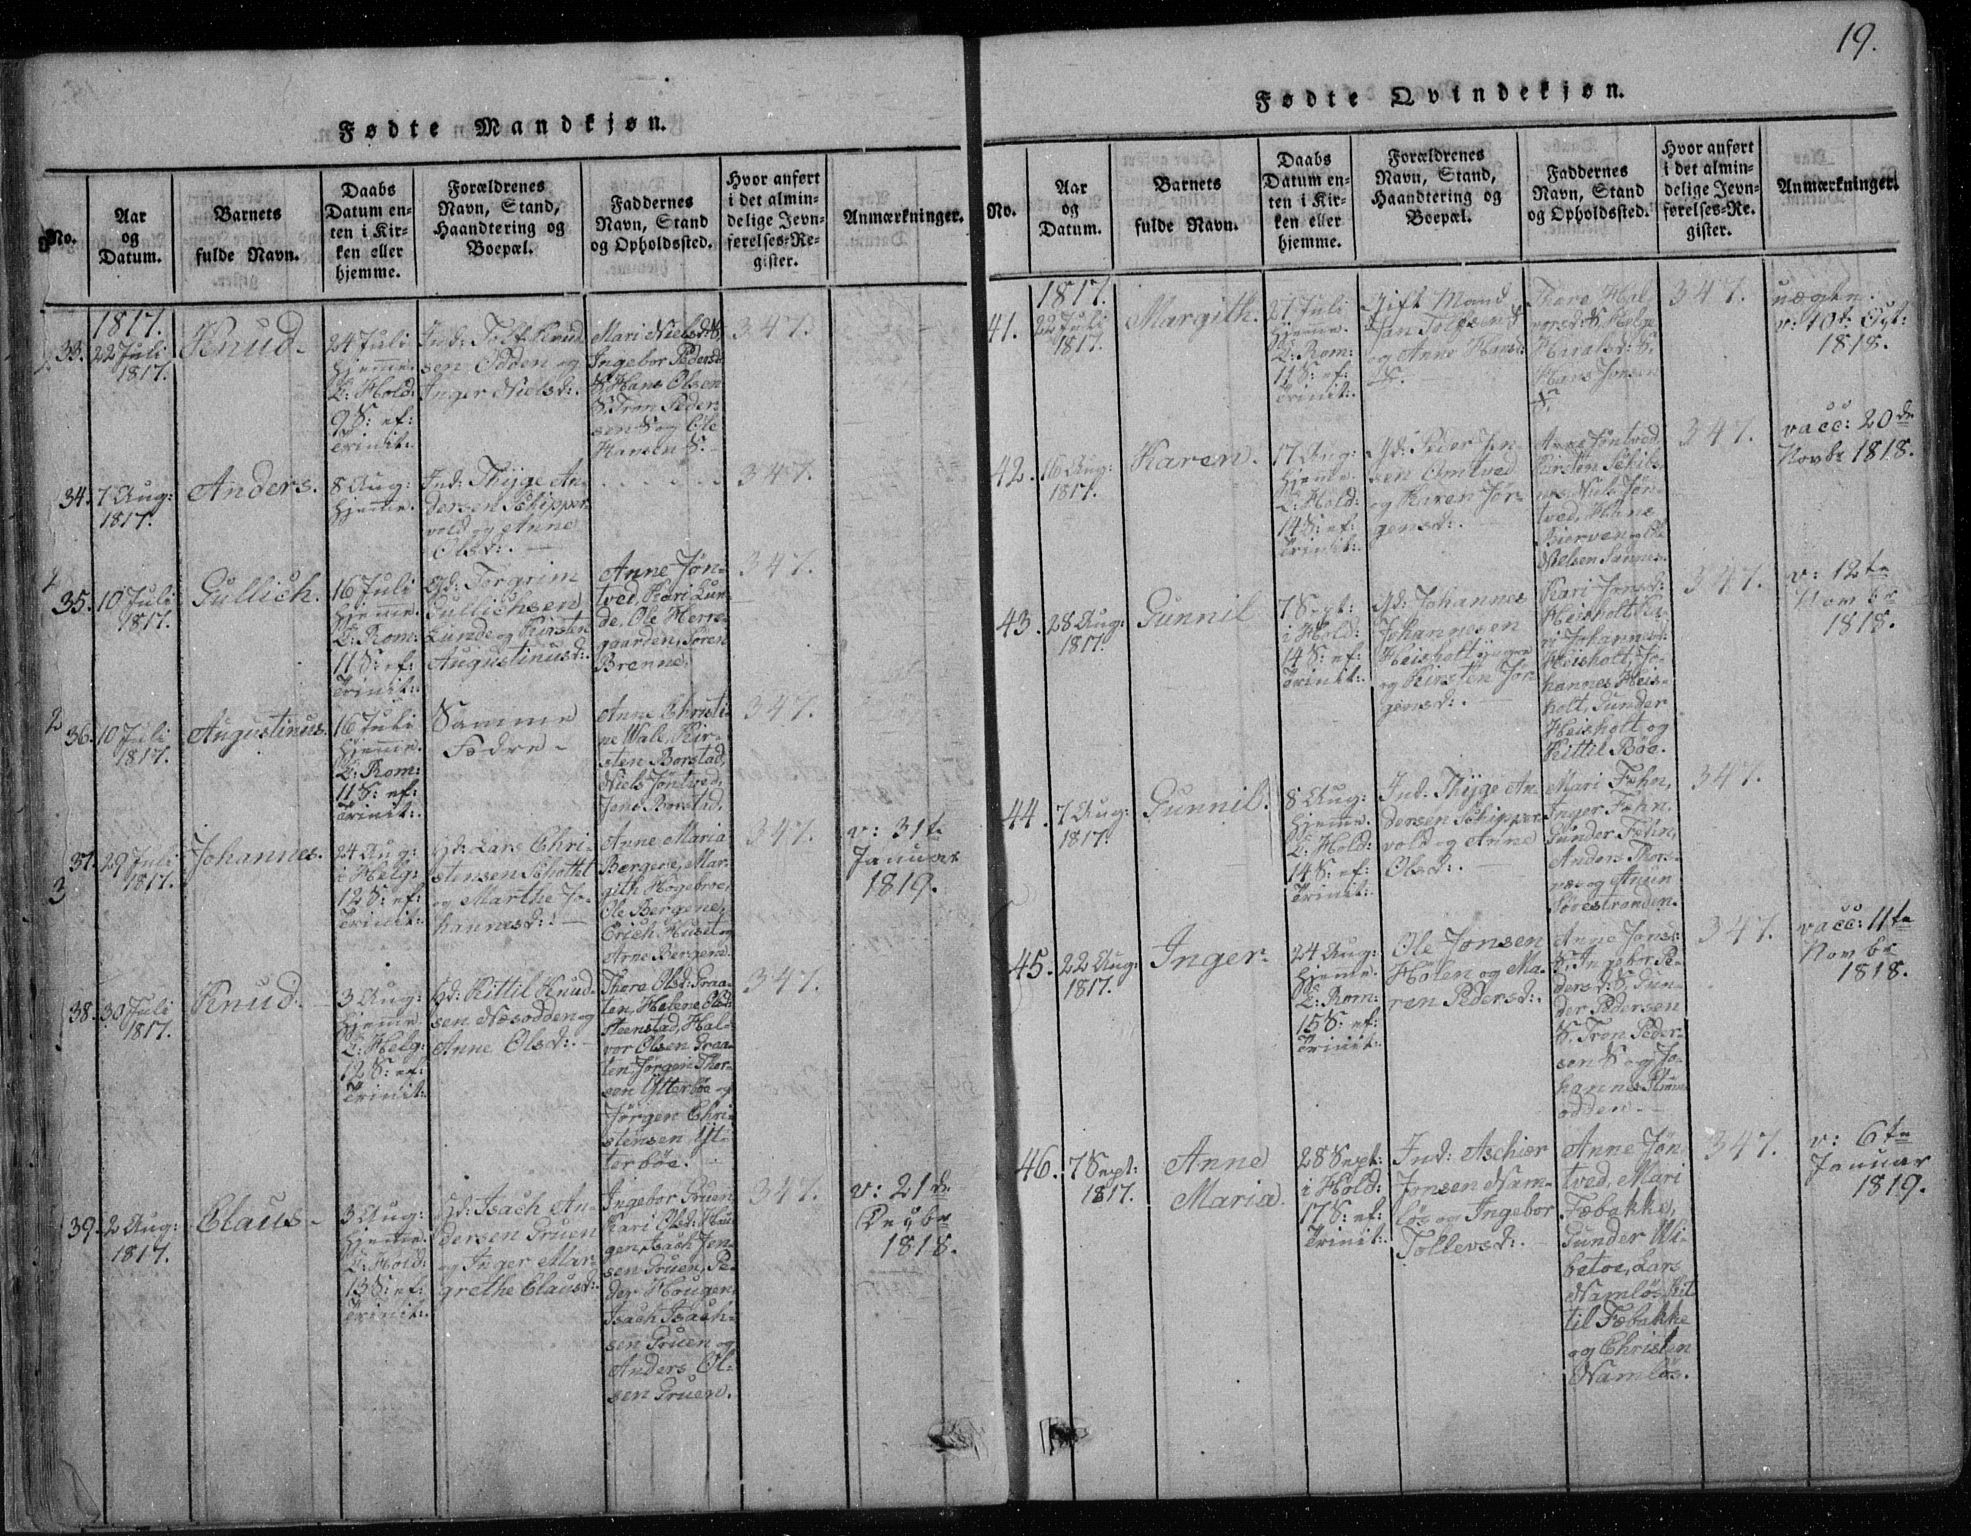 19.
Fødte Mandkjøn.
No.
Aar
og
Datum.
Barnets
fulde Navn.
Daabs
Datum en-
ten i Kir-
ken eller
hjemme.
Forældrenes
Navn, Stand,
Haandtering og
Boepæl.
Faddernes
Navn, Stand
og Opholdssted.
Hvor anført
i det almin-
delige Jevn-
førelses-Re-
gister.
Anmærkninger.
33.
1817.
22 Juli
1817.
Knud.
24 Juli
hjemme.
D: Hold:
9 S: ef:
Trinit:
Ind: Tolf Knud-
sen Odden og
Inger Nielsd:.
Mari Nielsd: S,
Ingebor Pedersd:
S, Hans Olsen
S, Tron Peder-
sen S og Ole
Hansen S.
347.
34.
7 Aug:
1817.
Anders.
8 Aug:
hjemme.
Ind: Thyge An-
dersen Schipper-
vold og Anne
Olsd:.
347.
2
35.
10 Juli
1817.
Gullich.
16 Juli
hjemme.
D: Rom:
11 S: ef:
Trinit:
Gd: Torgrim
Gullichsen
Lunde og Kirsten
Augustinusd:.
Anne Jøn-
tved, Kari Lun-
de, Ole Herre-
gaarden, Søren
Brenne.
347.
2
36.
10 Juli
1817.
Augustinus.
16 Juli
hjemme.
D: Rom:
11 S: ef:
Trinit:
Samme
Fødre -
Anne Christi-
ne Wale, Kir-
sten Borstad,
Niels Jøntved,
Jens Borstad.
347.
37.
3
29 Juli
1817.
Johannes.
24 Aug:
i Helg:
12 S: ef:
Trinit:
Gd: Lars Chri-
stensen Schottet
og Marthe Jo-
hannesd:. -
Anne Maria
Bergene, Mar-
gith Høgebroe,
Ole Bergene,
Erich Huset og
Arne Bergene.
347.
v: 31te
Januar
1819.
38.
30 Juli
1817.
Knud.
3 Aug:
hjemme
D: Helg:
12 S: ef:
Trinit:
Gd: Kittil Knud-
sen Næsodden og
Anne Olsd:. -
Thore Olsd: Graa-
ten, Helene Olsd:
Steenstad, Hal-
vor Olsen Graa-
ten, Jørgen Thor-
sen Ytterbøe og
Jørgen Chri-
stensen Yt-
terbøe.
347.
39.
2 Aug:
1817.
Claus -
3 Aug:
hjemme.
D: Hold:
13 S: ef:
Trinit:
Gd: Isach An-
dersen Gruen
og Inger Mar-
grethe Clausd:.
Ingebor Gruen,
Kari Olsd: Hau-
gen, Isach Jen-
sen Gruen, Pe-
der Hougen,
Isach Isach-
sen Gruen og
Anders Ol-
sen Gruen.
347.
v: 21de
Decbr
1818.
Fødte Qvindekjøn.
No.
Aar
og
Datum.
Barnets
fulde Navn.
Daabs
Datum en-
ten i Kir-
ken eller
hjemme.
Forældrenes
Navn, Stand,
Haandtering og
Boepæl.
Faddernes
Navn, Stand
og Opholdssted.
Hvor anført
i det almin-
delige Jevn-
førelses-Re-
gister.
Anmærkninger.
41.
1817.
22 Juli
1817.
Margith.
27 Juli
hjemme.
D: Rom:
11 S: ef:
Trinit:
Gift Mand
Jan Tolfsen S
og Anne Hansd:
S.
Hans Jensen
S.
347.
uægte.
v: 10t. Oct:
1818.
42.
16 Aug:
1817.
Karen.
17 Aug:
hjemme
D: Hold:
14 S: ef:
Trinit:
Gd: Peder Jen-
sen Omtved
og Karen Jør-
gensd:.
Anne Jøntved,
Niels Jøn-
tved, Hans
347.
vacc: 20de
Novbr 1818.
43.
28 Aug:
1817.
Gunnil
7 Sept:
i Hold:
14 S: ef:
Trinit:
Gd: Johannes
Johannesen
Heisholt
og Kirsten Jør-
gensd:. -
Kari Jonsd:
Heisholt, Ka-
ri Johannesd:
Heisholt, Jo-
hannes Heis-
holt, Gunder
Heisholt og
Kittil Bøe.
347.
v: 12te
Novbr
1818.
44.
7 Aug:
1817.
Gunnil.
8 Aug:
hjemme.
D: Hold:
14 S: ef:
Trinit:
Ind: Thyge An-
dersen Schipper-
vold og Anne
Olsd:. -
Mari Fehn,
Inger Fehn,
Gunder Fehn,
Anders Thors-
næs og Amun
Sørestranden.
347.
45.
22 Aug:
1817.
Inger.
24 Aug:
hjemme.
D: Rom:
15 S: ef:
Trinit:
Ole Jonsen
Holen og Ma-
ren Pedersd:.
Anne Jonsd:
S, Ingebor Pe-
dersd: S, Gun-
der Pedersen
S, Tron Peder-
sen S og Jo-
hannes
odden.
347.
vacc: 11te
Novbr
1818.
46.
7 Sept:
1817.
Anne
Maria.
28 Sept:
i Hold:
17 S: ef:
Trinit:
Ind: Aschier
Jonsen Nam-
løs og Ingebor
Tollevsd:.
Anne Jøn-
tved, Mari
Fæbakke,
Gunder Wi-
betoe, Lars
Namløs, Kit-
til Fæbakke
og Christen
Namløs.
347.
v: 6te
Januar
1819.